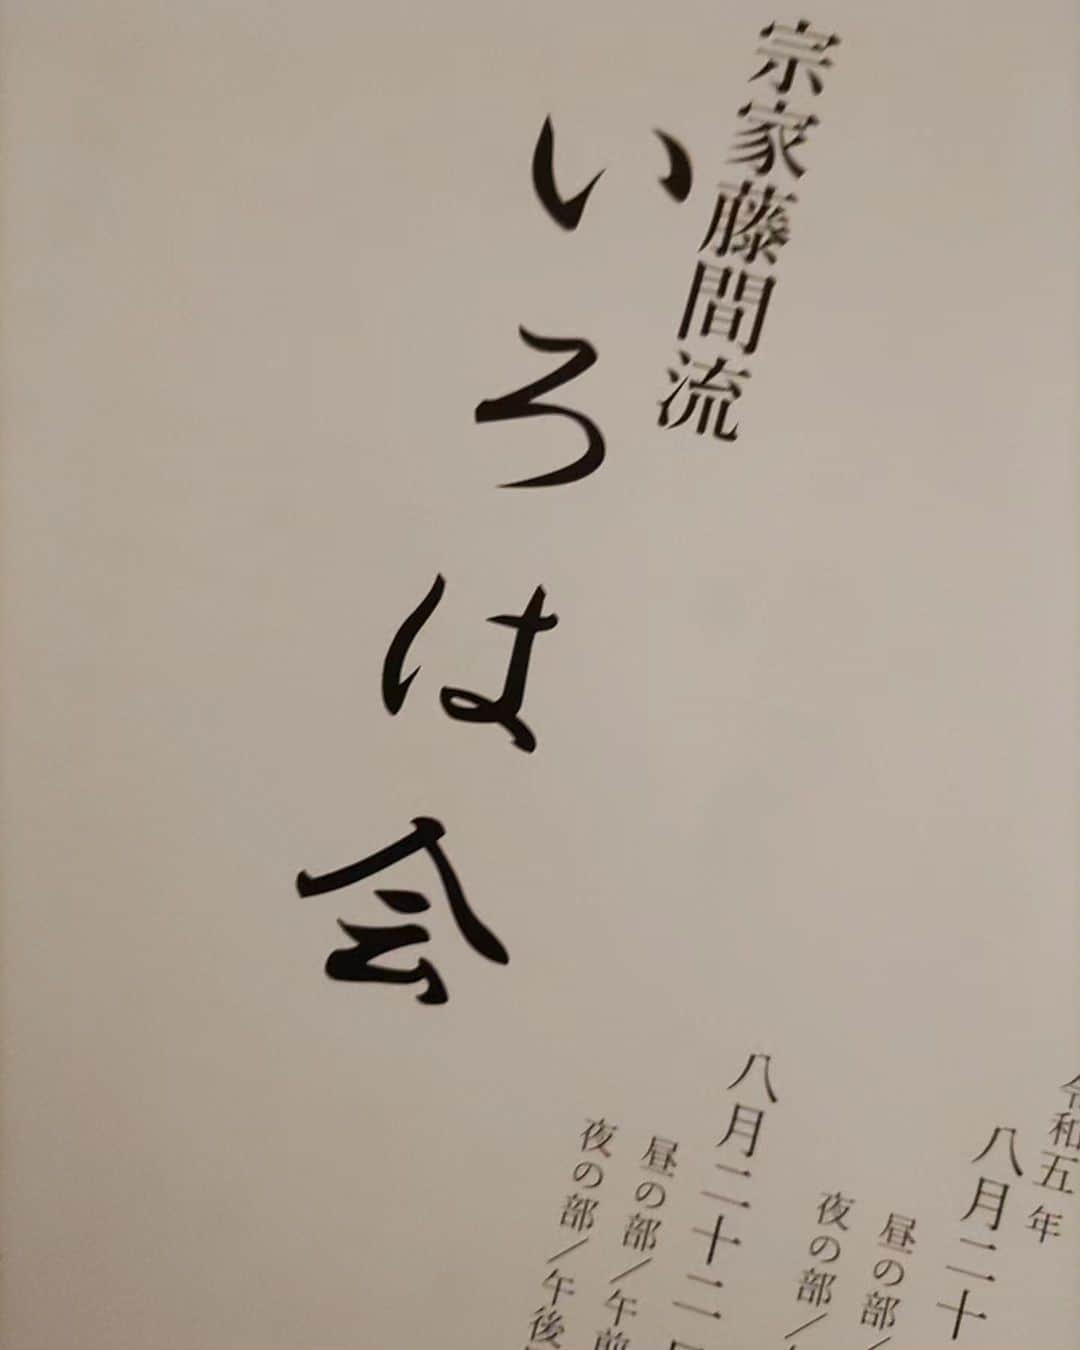 宗家藤間流
いろは会
令和五年
八月二十
昼の部／
夜の部／
八月二十二日
昼の部／午前
夜の部／午後